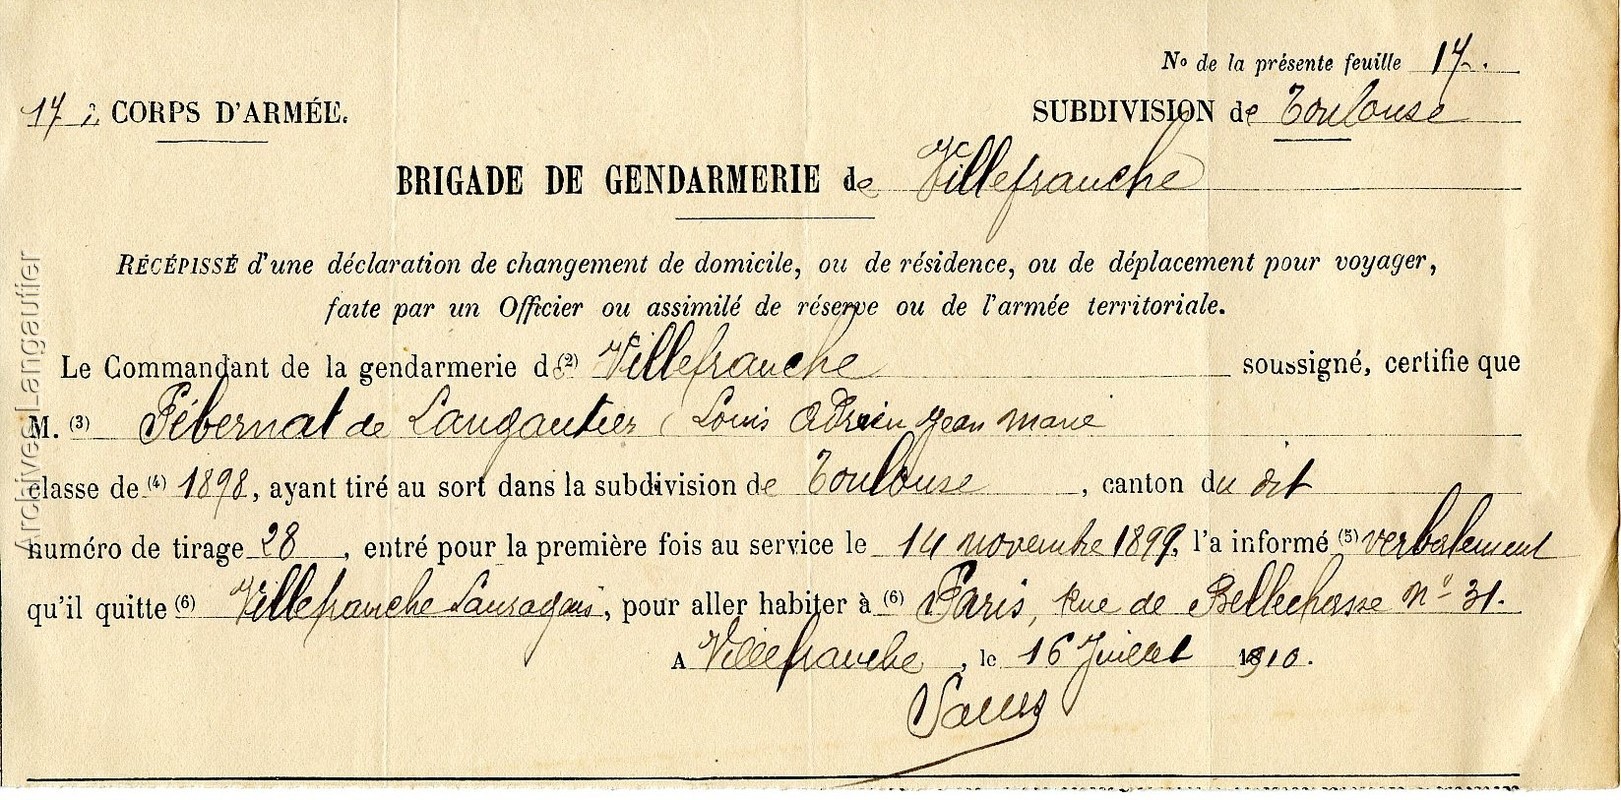 No de la présente feuille 17.
17e CORPS D'ARMÉE.
SUBDIVISION de Toulouse
BRIGADE DE GENDARMERIE de Villefranche
RÉCÉPISSÉ d'une déclaration de changement de domicile, ou de résidence, ou de déplacement pour voyager,
faite par un Officier ou assimilé de réserve ou de l'armée territoriale.
Le Commandant de la gendarmerie de (2) Villefranche soussigné, certifie que
M. (3) Pébernat de Langautier, Louis Adrien Jean Marie
classe de (4) 1898, ayant tiré au sort dans la subdivision de Toulouse, canton du dit
numéro de tirage 28, entré pour la première fois au service le 14 novembre 1899, l'a informé (5) verbalement
qu'il quitte (6) Villefranche Lauragais, pour aller habiter à (6) Paris, Rue de Bellechasse No 31.
A Villefranche, le 16 Juillet 1910.
Archives Langautier